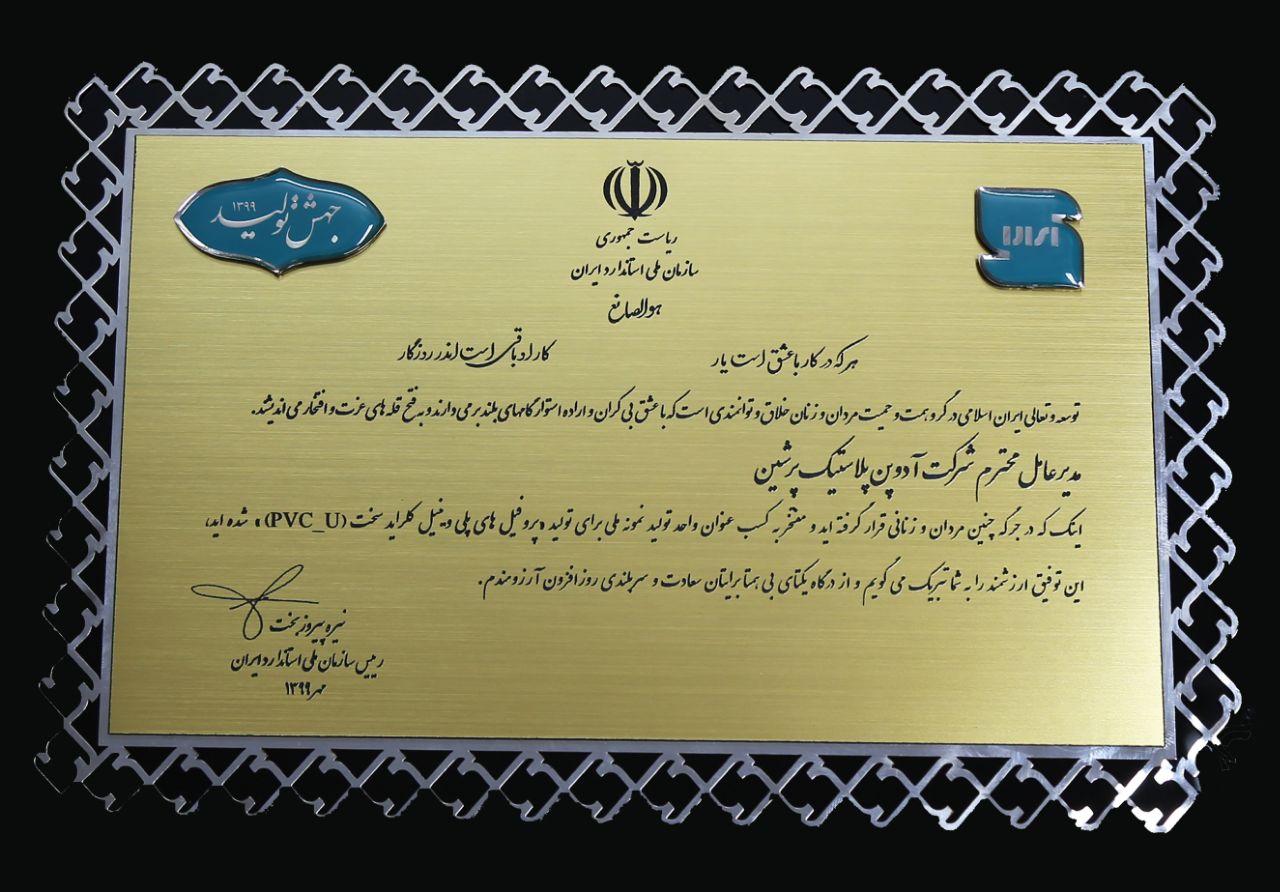 جهش تولید ۱۳۹۹
ریاست جمهوری
سازمان ملی استاندارد ایران
هوالصانع
هر که در کار با عشق است یار کار او باقی است اندر روزگار
توسعه و تعالی ایران اسلامی در گرو همت و حمیت مردان و زنان خلاق و توانمندی است که با عشق بی کران و اراده استوار گامهای بلند برمی دارند و به فتح قله های عزت و افتخار می اندیشند.
مدیرعامل محترم شرکت آدوپن پلاستیک پرشین
اینک که در جرگه چنین مردان و زنانی قرار گرفته اید و مفتخر به کسب عنوان واحد تولید نمونه ملی برای تولید «پروفیل های پلی وینیل کلراید سخت (PVC_U)» شده اید،
این توفیق ارزشمند را به شما تبریک می گویم و از درگاه یکتای بی همتا برایتان سعادت و سربلندی روزافزون آرزومندم.
نیره پیروزبخت
رییس سازمان ملی استاندارد ایران
مهر ۱۳۹۹